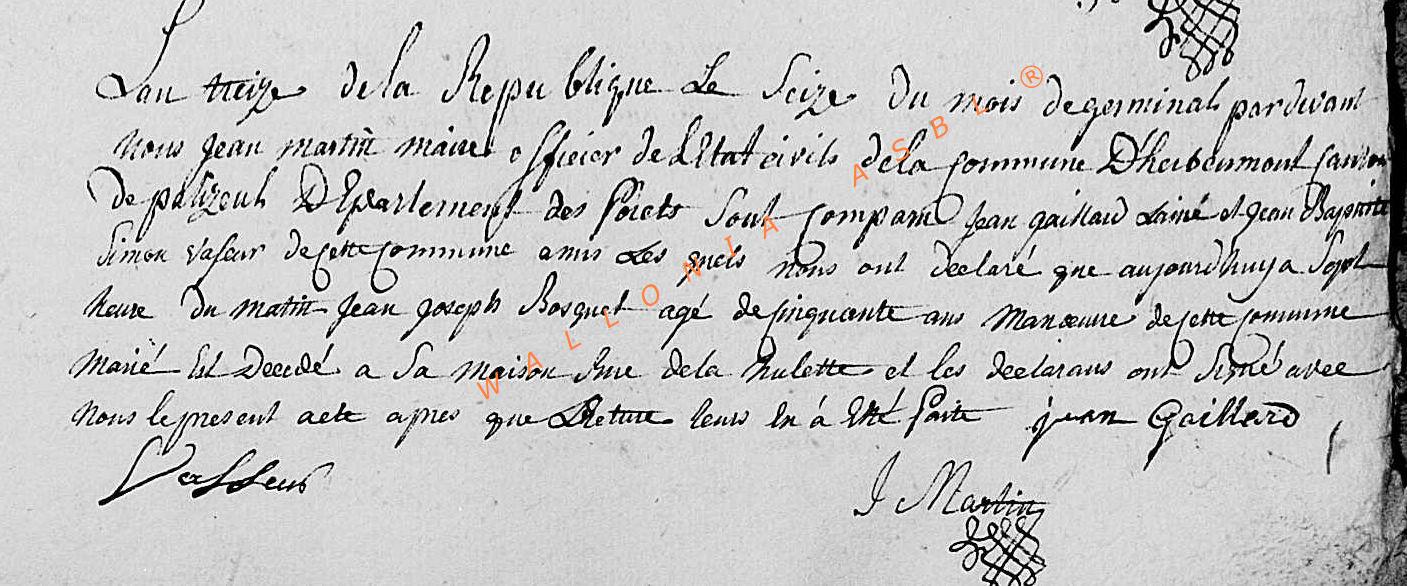 Lan treize de la Republique Le Seize du mois de germinal pardevant
nous jean martin maire officier de LEtat civils de la commune Dherbeumont canton
de palizeul DEpartement des Forets Sont comparu jean gaillard Lainé et jean Baptiste
Simon vaseur de cette commune amis Les quels nous ont declaré que aujourdhuy a Sept
heure du matin jean joseph Bosquet agé de cinquante ans Manoeuvre de cette commune
Marié Est Decedé a Sa maison Rue de la hulette et les declarans ont Signé avec
nous le present acte apres que Lecture leurs En á Eté faite jean Gaillard
Vasseur
J Martin
WALLONIA ASBL ®